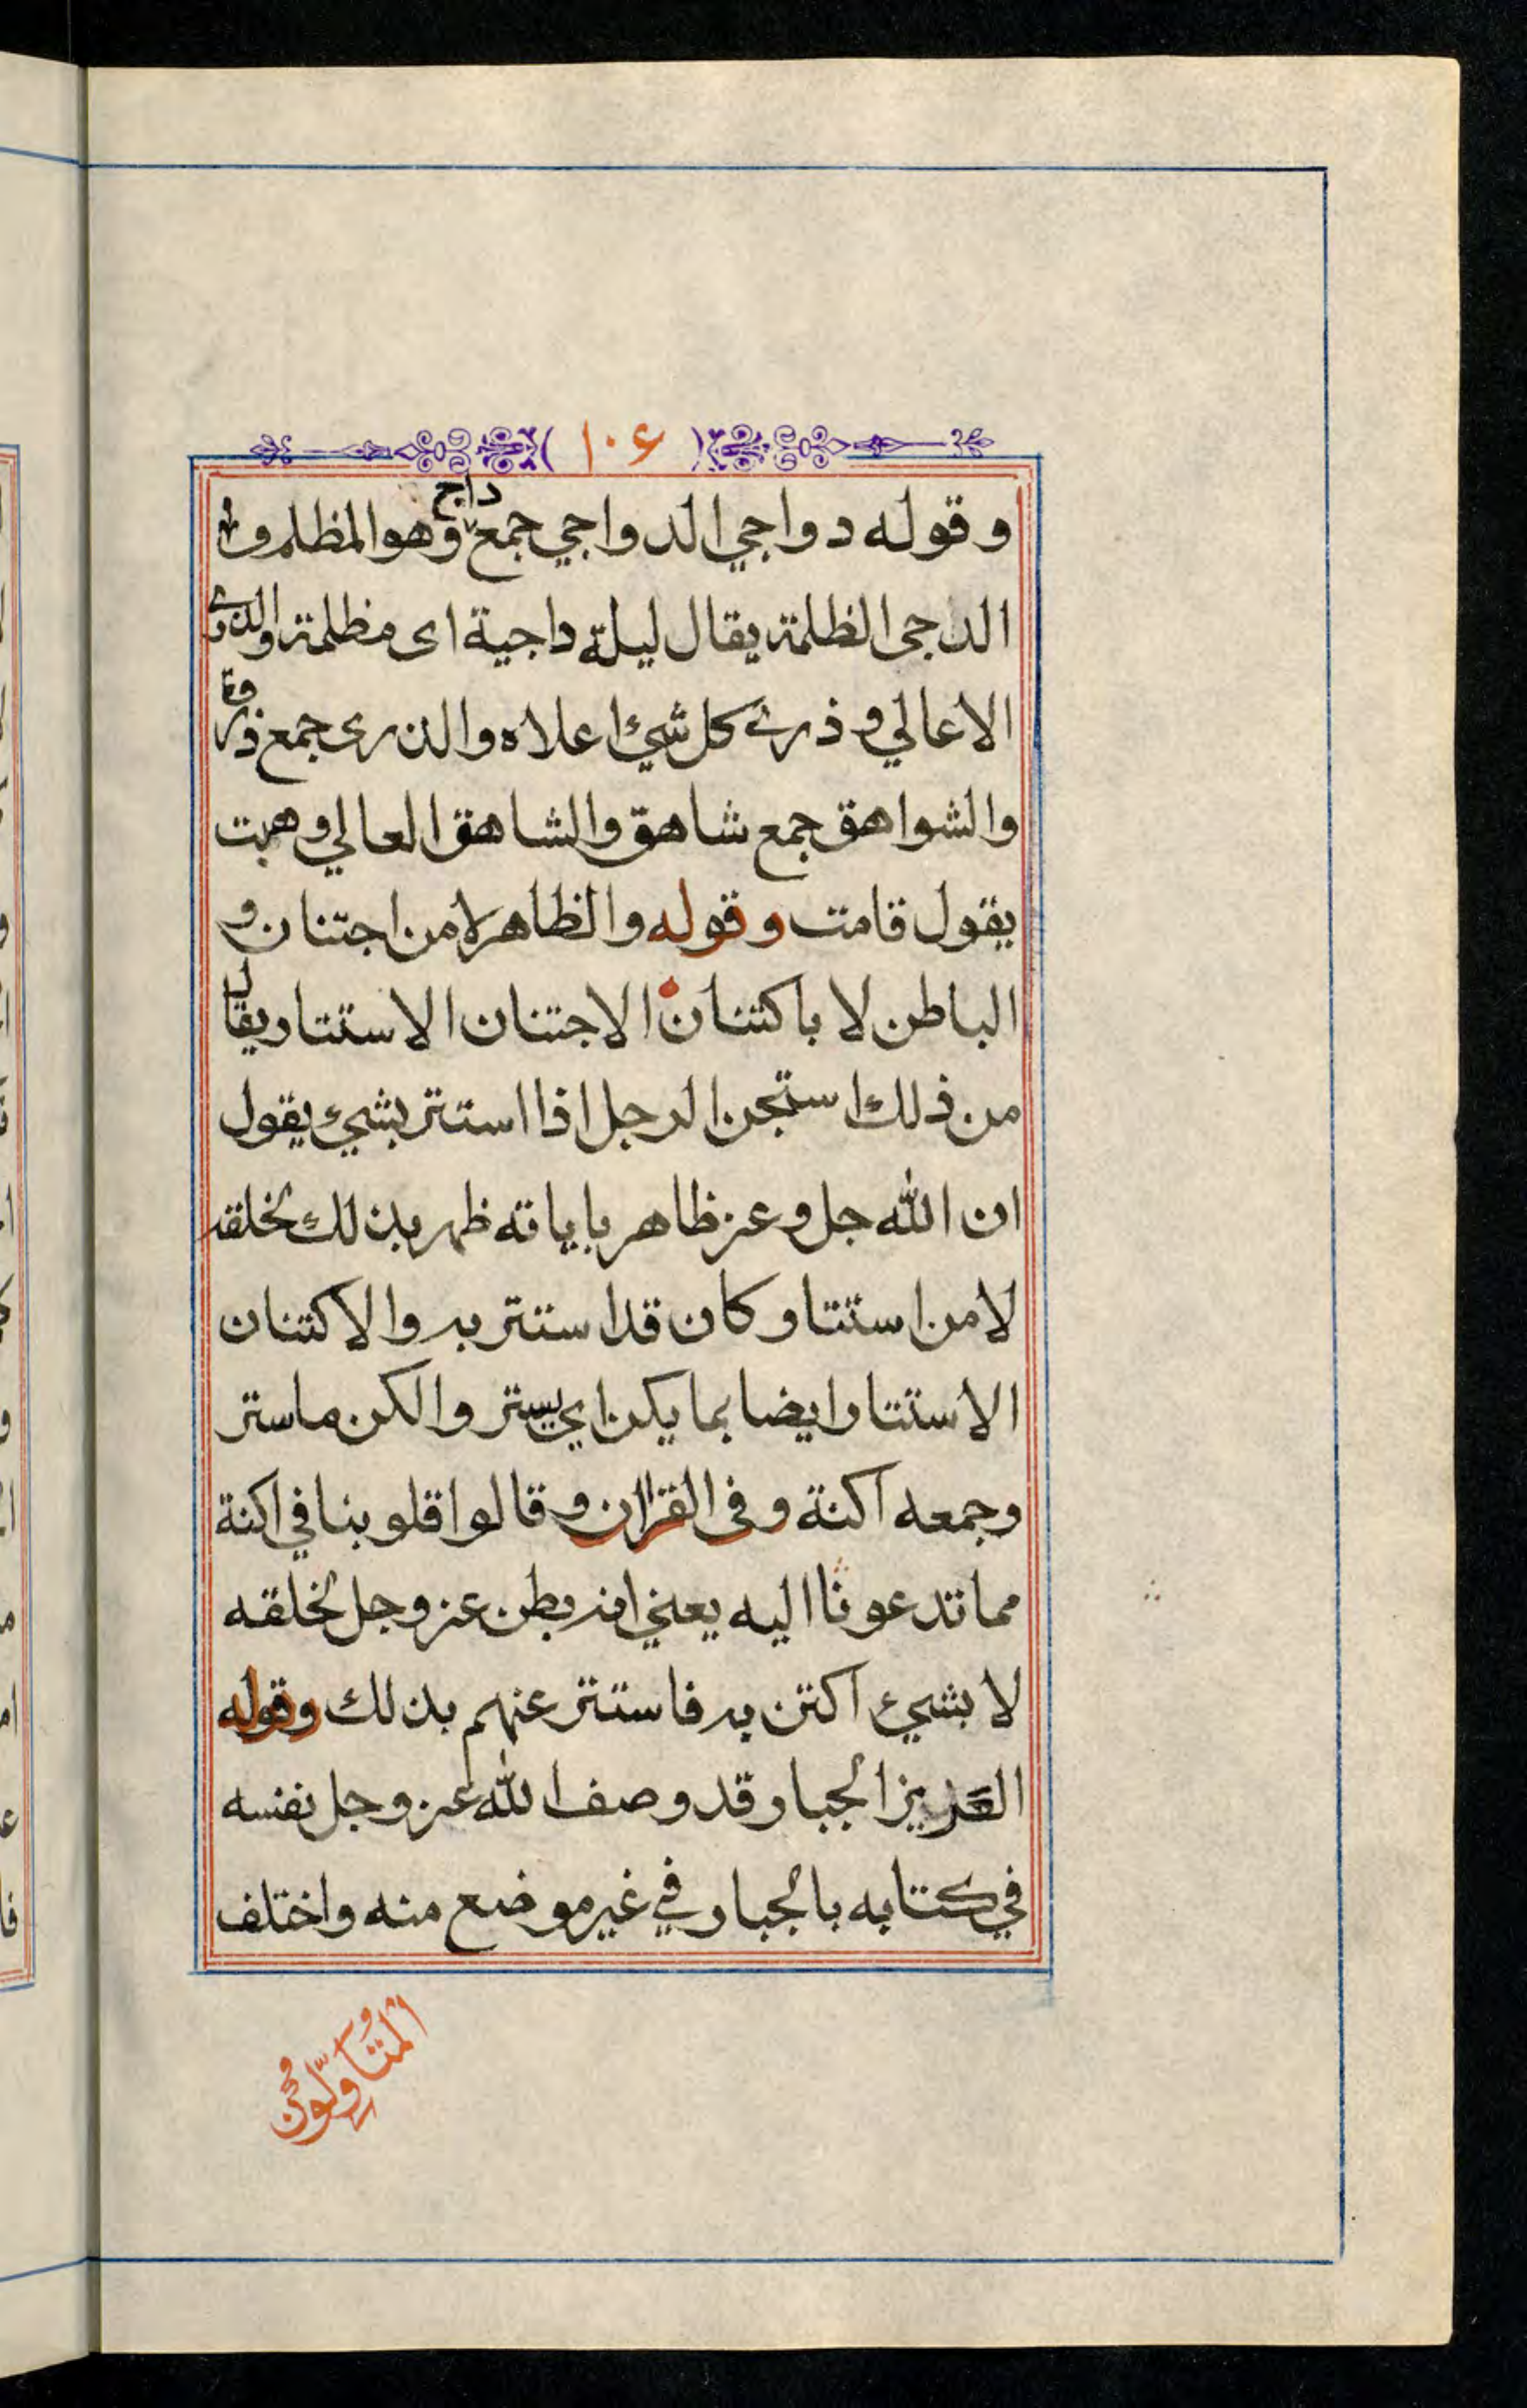 ١٠٦
وقوله دواجي الدواجي جمع داج وهو المظلم و
الدجى الظلمة يقال ليلة داجية اى مظلمة والذرى
الاعالي و ذرى كل شيئ اعلاه والذرى جمع ذروة
والشواهق جمع شاهق والشاهق العالي وهبت
يقول قامت وقوله والظاهر لا من اجتنان و
الباطن لا باكتنان الاجتنان الاستتار يقال
من ذلك استجن الرجل اذا استتر بشيئ يقول
ان الله جل وعز ظاهر باياته ظهر بذلك لخلقه
لا من استتار كان قد استتر به والاكتنان
الاستتار ايضا بما يكن اي يستر والكن ما ستر
وجمعه اكنة وفى القران وقالوا قلوبنا في اكنة
مما تدعونا اليه يعني انه بطن عز وجل لخلقه
لا بشيئ اكتن به فاستتر عنهم بذلك وقوله
العزيز الجبار قد وصف الله عز وجل نفسه
في كتابه بالجبار في غير موضع منه واختلف
المتأولون